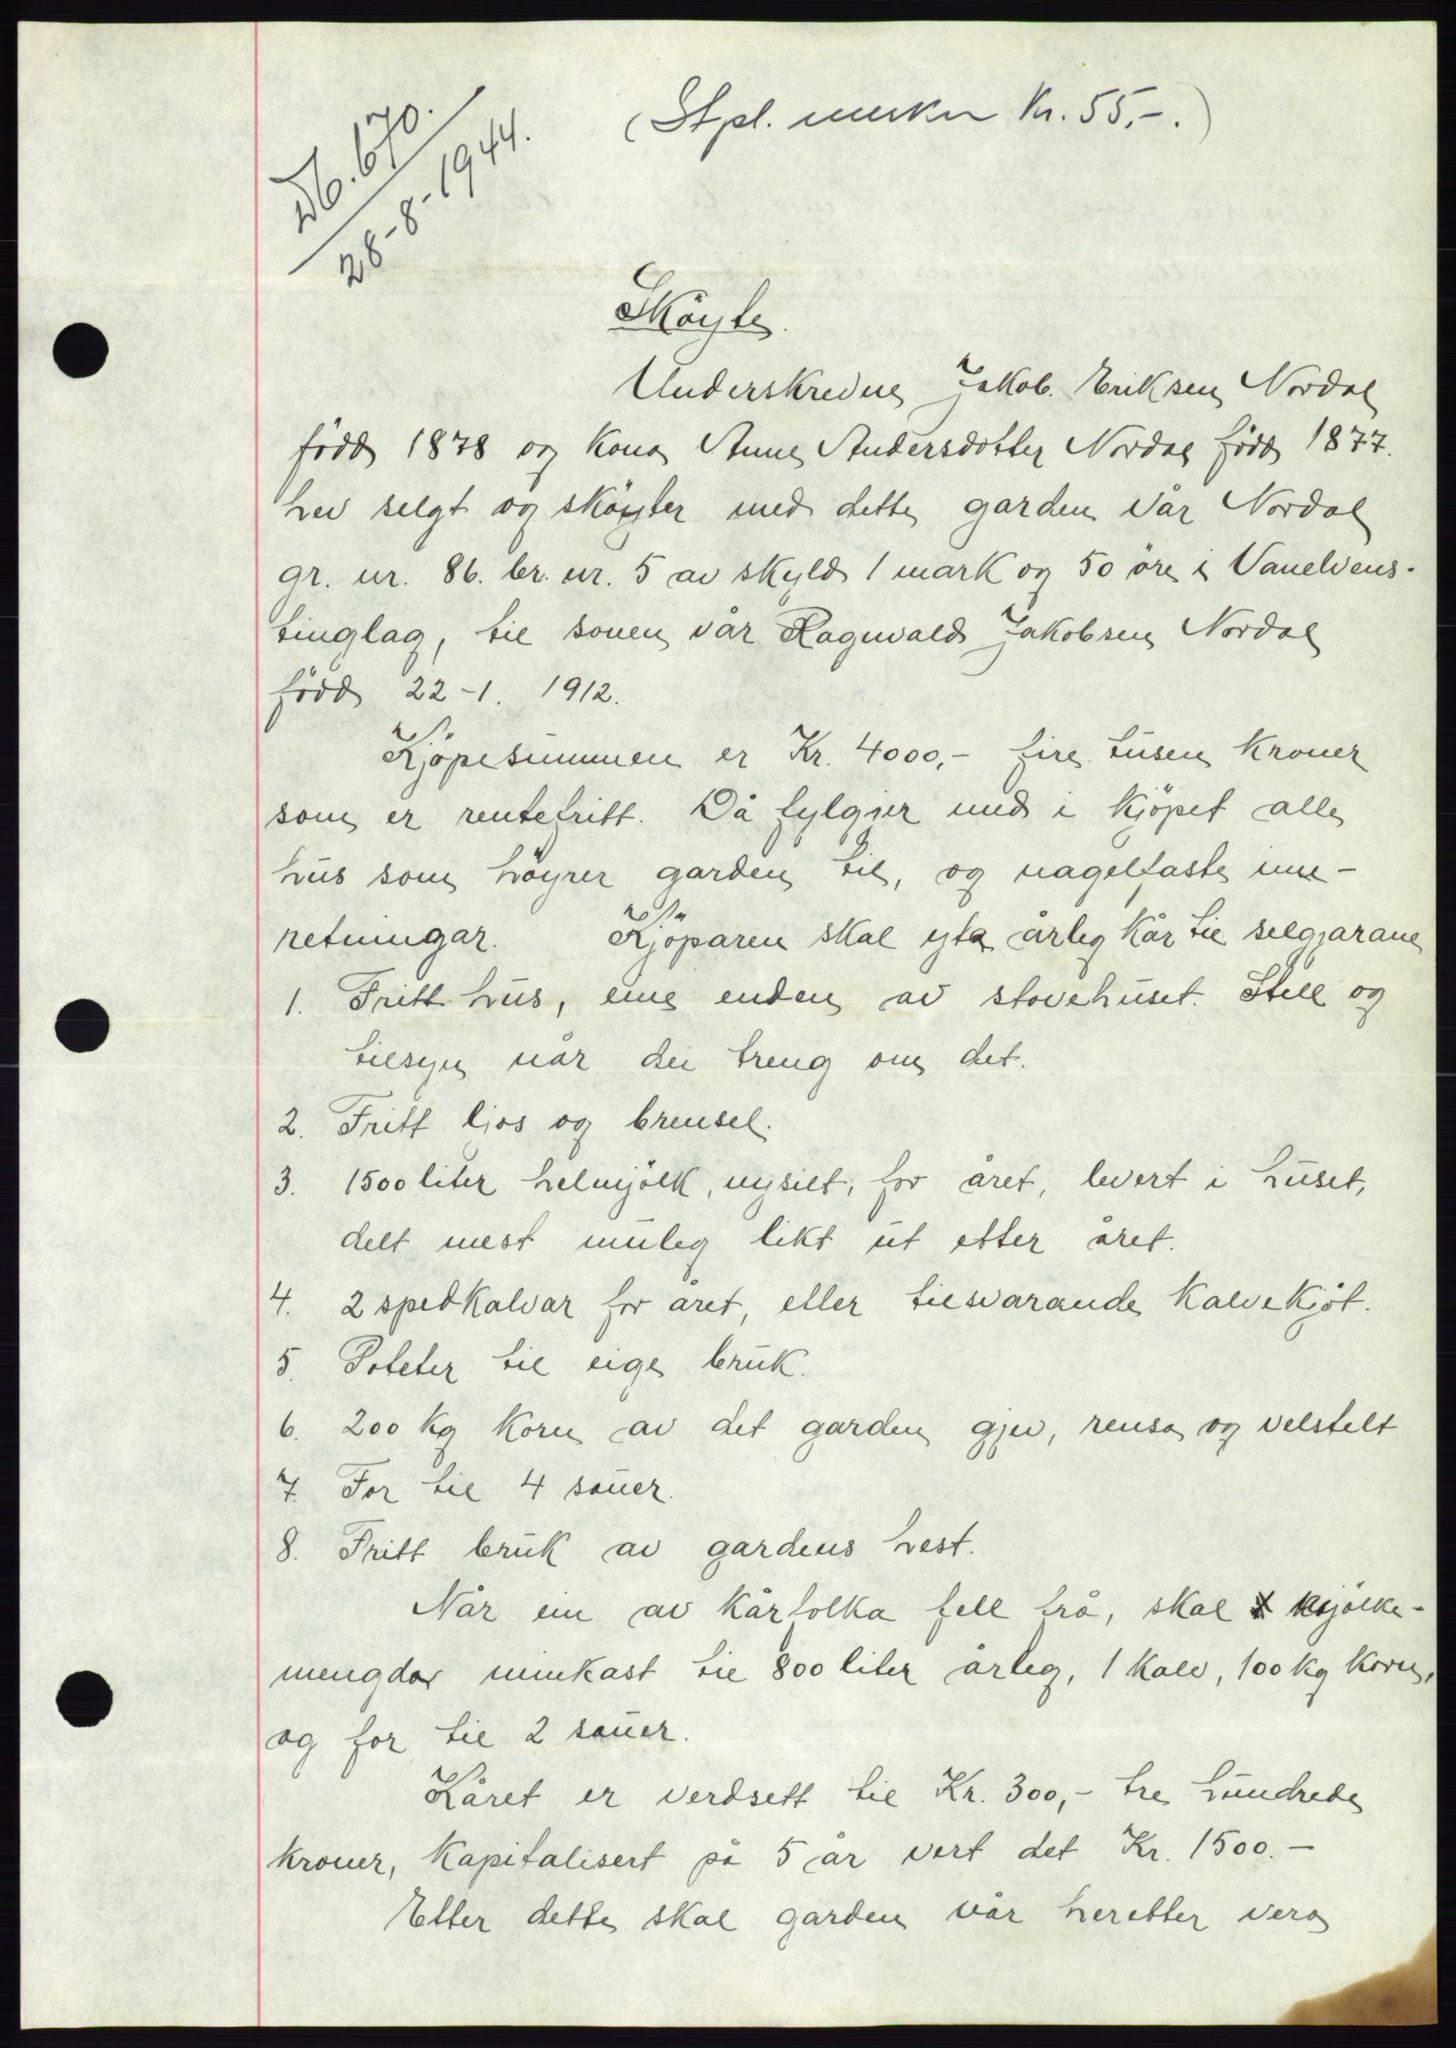 Db. 670.
28-8-1944.
(Stpl. merker Kr. 55,-.)
Sköyte.
Underskrevne Jakob. Eriksen Nordal
född 1878 og kona Anne Andersdotter Nordal född 1877.
hev selgt og sköyter med dette garden vår Nordal
gr. nr. 86. br. nr. 5 av skyld 1 mark og 50 öre i Vanelvens-
tinglag, til sonen vår Ragnvald Jakobsen Nordal
född 22-1. 1912.
Kjöpesummen er Kr. 4000,- fire tusen kroner
som er rentefritt. Då fylgjer med i kjöpet alle
hus som höyrer garden til, og nagelfaste inn-
retningar. Kjöparen skal yta årleg kår til seljarane
1. Fritt hus, eine enden av stovehuset. Stell og
tilsyn når dei treng om det.
2. Fritt ljos og brensel.
3. 1500 liter helmjölk, nysilt, for året, levert i huset,
delt mest muleg likt ut etter året.
4. 2 spedkalvar for året, eller tilsvarande kalvekjöt.
5. Poteter til eige bruk.
6. 200 kg korn av det garden gjev, rensa og velstelt
7. For til 4 sauer.
8. Fritt bruk av gardens hest.
Når ein av kårfolka fell frå, skal mjölke-
mengda minkast til 800 liter årleg, 1 kalv, 100 kg korn,
og for til 2 sauer.
Kåret er verdsett til Kr. 300,- tre hundrede
kroner, kapitalisert på 5 år vert det Kr. 1500.-
Etter dette skal garden vår heretter vera